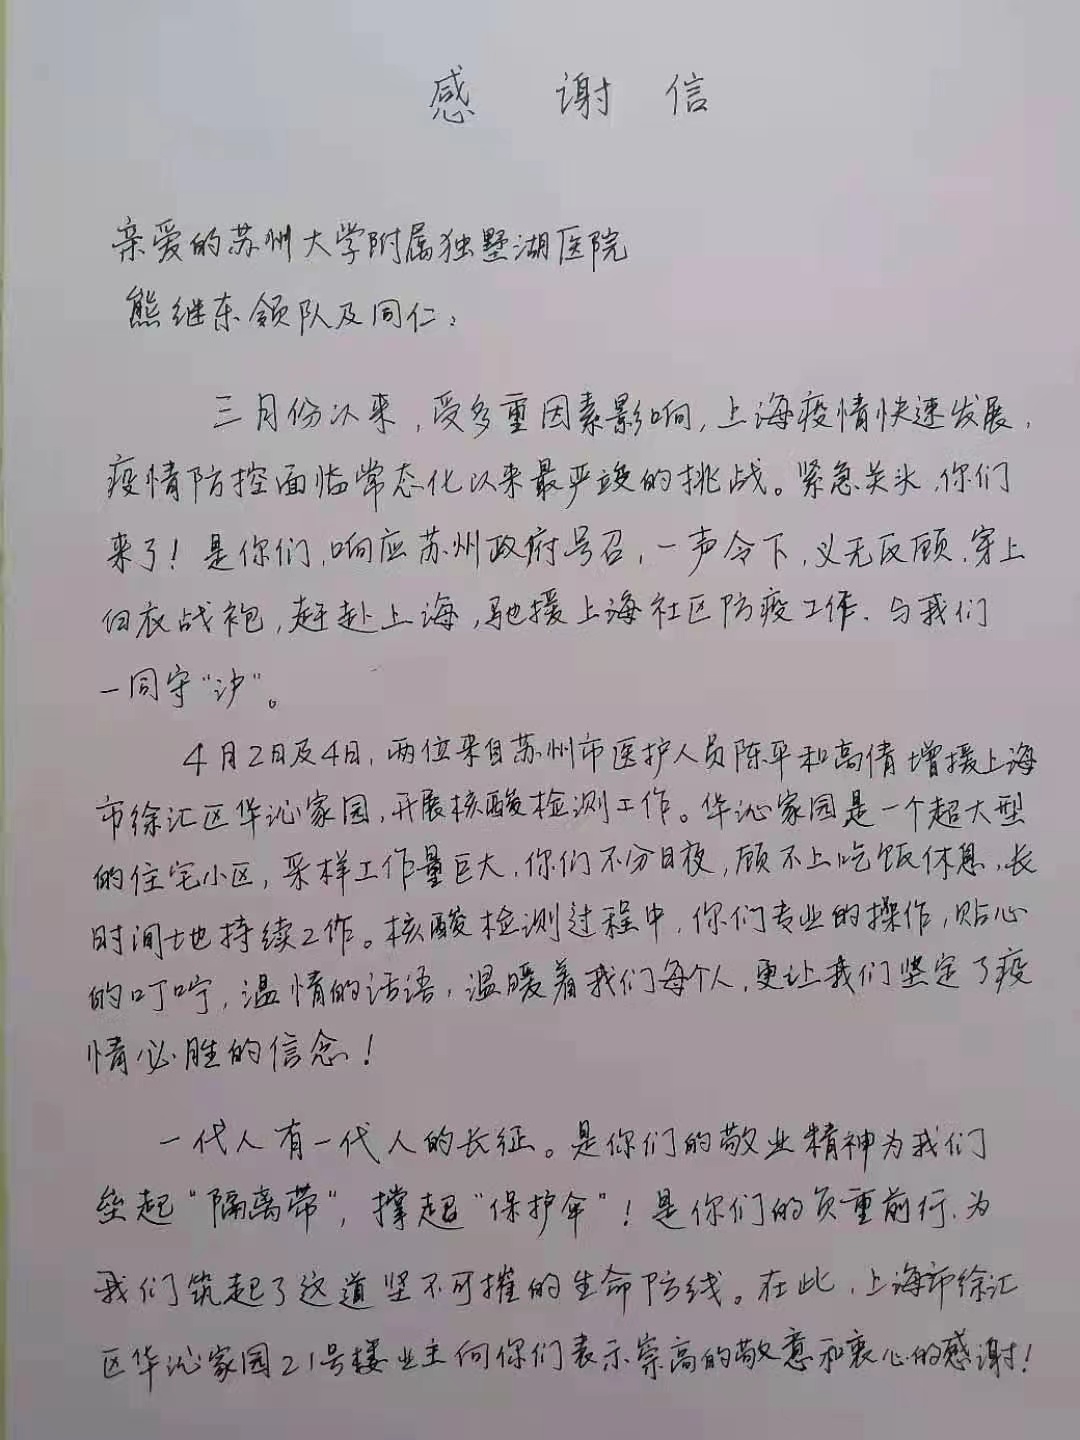 感谢信
亲爱的苏州大学附属独墅湖医院
熊继东领队及同仁：
三月份以来，受多重因素影响，上海疫情快速发展，
疫情防控面临常态化以来最严峻的挑战。紧急关头，你们
来了！是你们，响应苏州政府号召，一声令下，义无反顾，穿上
白衣战袍，赶赴上海，驰援上海社区防疫工作，与我们
一同守“沪”。
4月2日及4日，两位来自苏州市医护人员陈平和高倩增援上海
市徐汇区华沁家园，开展核酸检测工作。华沁家园是一个超大型
的住宅小区，采样工作量巨大，你们不分日夜，顾不上吃饭休息，长
时间地持续工作。核酸检测过程中，你们专业的操作，贴心
的叮咛，温情的话语，温暖着我们每个人，更让我们坚定了疫
情必胜的信念！
一代人有一代人的长征。是你们的敬业精神为我们
垒起“隔离带”，撑起“保护伞”！是你们的负重前行，为
我们筑起了这道坚不可摧的生命防线。在此，上海市徐汇
区华沁家园21号楼业主向你们表示崇高的敬意和衷心的感谢！